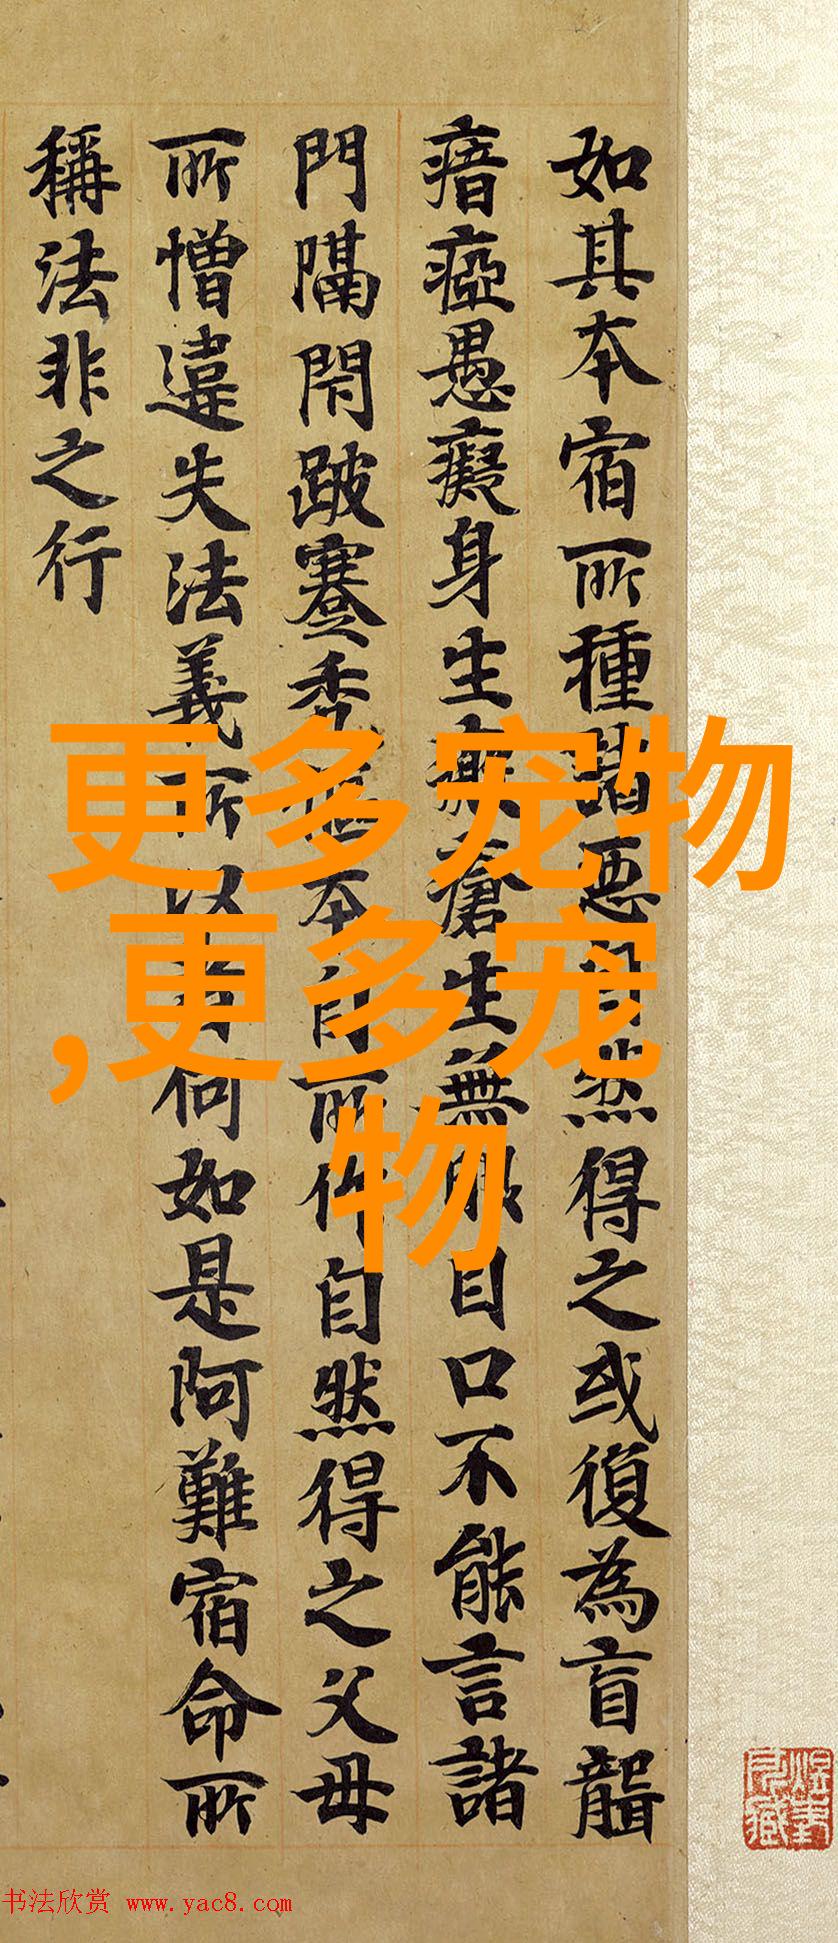 如其本宿所種諸惡自然得之或復為盲聾
瘖瘂愚癡身生癩瘡生無眼目口不能言諸
門隔閇跛蹇禿僂本自所作自然得之父母
所憎違失法義所以者何如是阿難宿命所
稱法非之行
更多宠物
,更多宠
物
书法欣赏 www.yac8.com